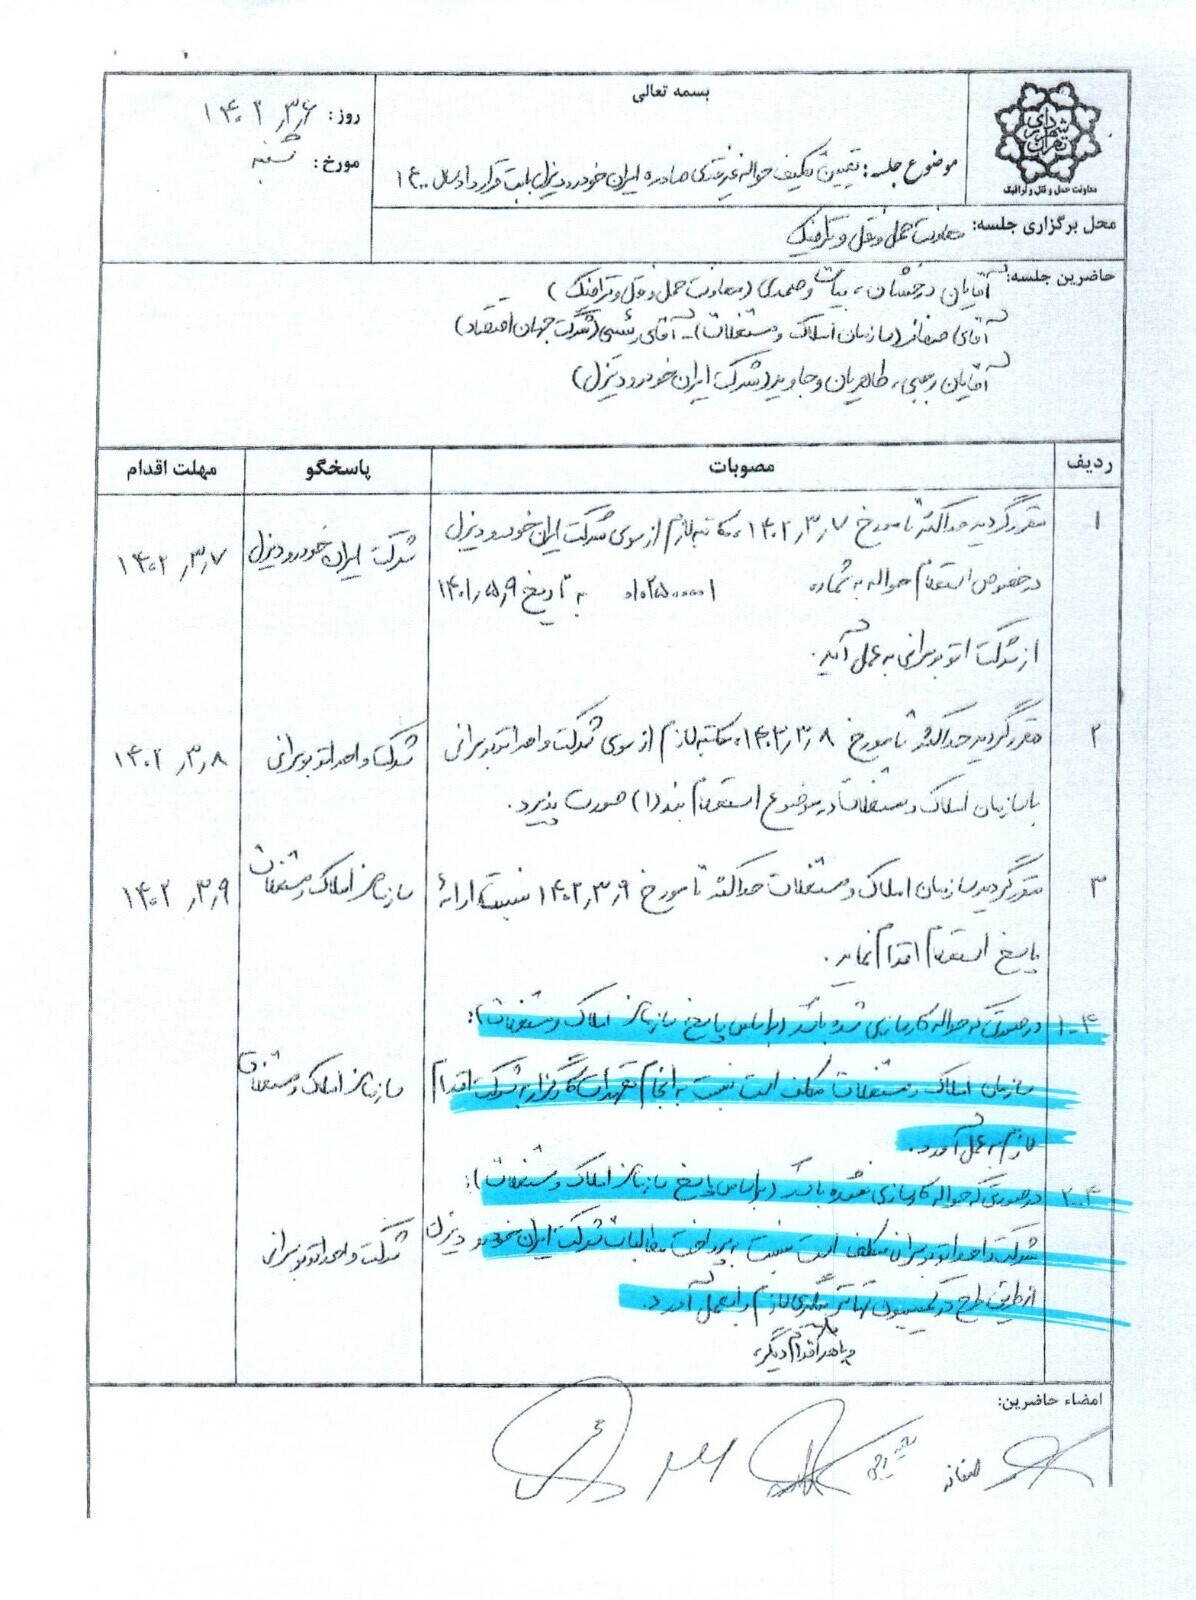 بسمه تعالی
شهرداری تهران
معاونت حمل و نقل و ترافیک
روز: ۱۴۰۲٫۳٫۶
مورخ: شنبه
موضوع جلسه: تعیین تکلیف حواله غیرنقدی صادره ایران خودرو دیزل بابت قرارداد سال ۱۴۰۰
محل برگزاری جلسه: معاونت حمل و نقل و ترافیک
حاضرین جلسه: آقایان درخشان، بیات و صمدی (معاونت حمل و نقل و ترافیک)
آقای صفائر (سازمان املاک و مستغلات) - آقای رئیسی (شرکت جهان اقتصاد)
آقایان رجبی، طاهریان و جاوید (شرکت ایران خودرو دیزل)
ردیف مصوبات پاسخگو مهلت اقدام
۱ مقرر گردید حداکثر تا مورخ ۱۴۰۲٫۳٫۷ مکاتبه لازم از سوی شرکت ایران خودرو دیزل شرکت ایران خودرو دیزل ۱۴۰۲٫۳٫۷
در خصوص استعلام حواله به شماره به تاریخ ۱۴۰۱٫۵٫۹
از شرکت اتوبوسرانی به عمل آید.
۲ مقرر گردید حداکثر تا مورخ ۱۴۰۲٫۳٫۸ مکاتبه لازم از سوی شرکت واحد اتوبوسرانی شرکت واحد اتوبوسرانی ۱۴۰۲٫۳٫۸
با سازمان املاک و مستغلات در موضوع استعلام بند (۱) صورت پذیرد.
۳ مقرر گردید سازمان املاک و مستغلات حداکثر تا مورخ ۱۴۰۲٫۳٫۹ نسبت ارائه سازمان املاک و مستغلات ۱۴۰۲٫۳٫۹
پاسخ استعلام اقدام نماید.
۴-۱ در صورتی که حواله کارسازی شده باشد (براساس پاسخ سازمان املاک و مستغلات):
سازمان املاک و مستغلات مکلف است نسبت به انجام تعهدات کارگزار به شرکت اقدام سازمان املاک و مستغلات
لازم به عمل آورد.
۴-۲ در صورتی که حواله کارسازی نشده باشد (براساس پاسخ سازمان املاک و مستغلات):
شرکت واحد اتوبوسرانی مکلف است نسبت به پرداخت مطالبات شرکت ایران خودرو دیزل شرکت واحد اتوبوسرانی
از طریق طرح در کمیسیون تهاتر پیگیری لازم را بعمل آورد.
و یا هر اقدام دیگر
امضاء حاضرین: